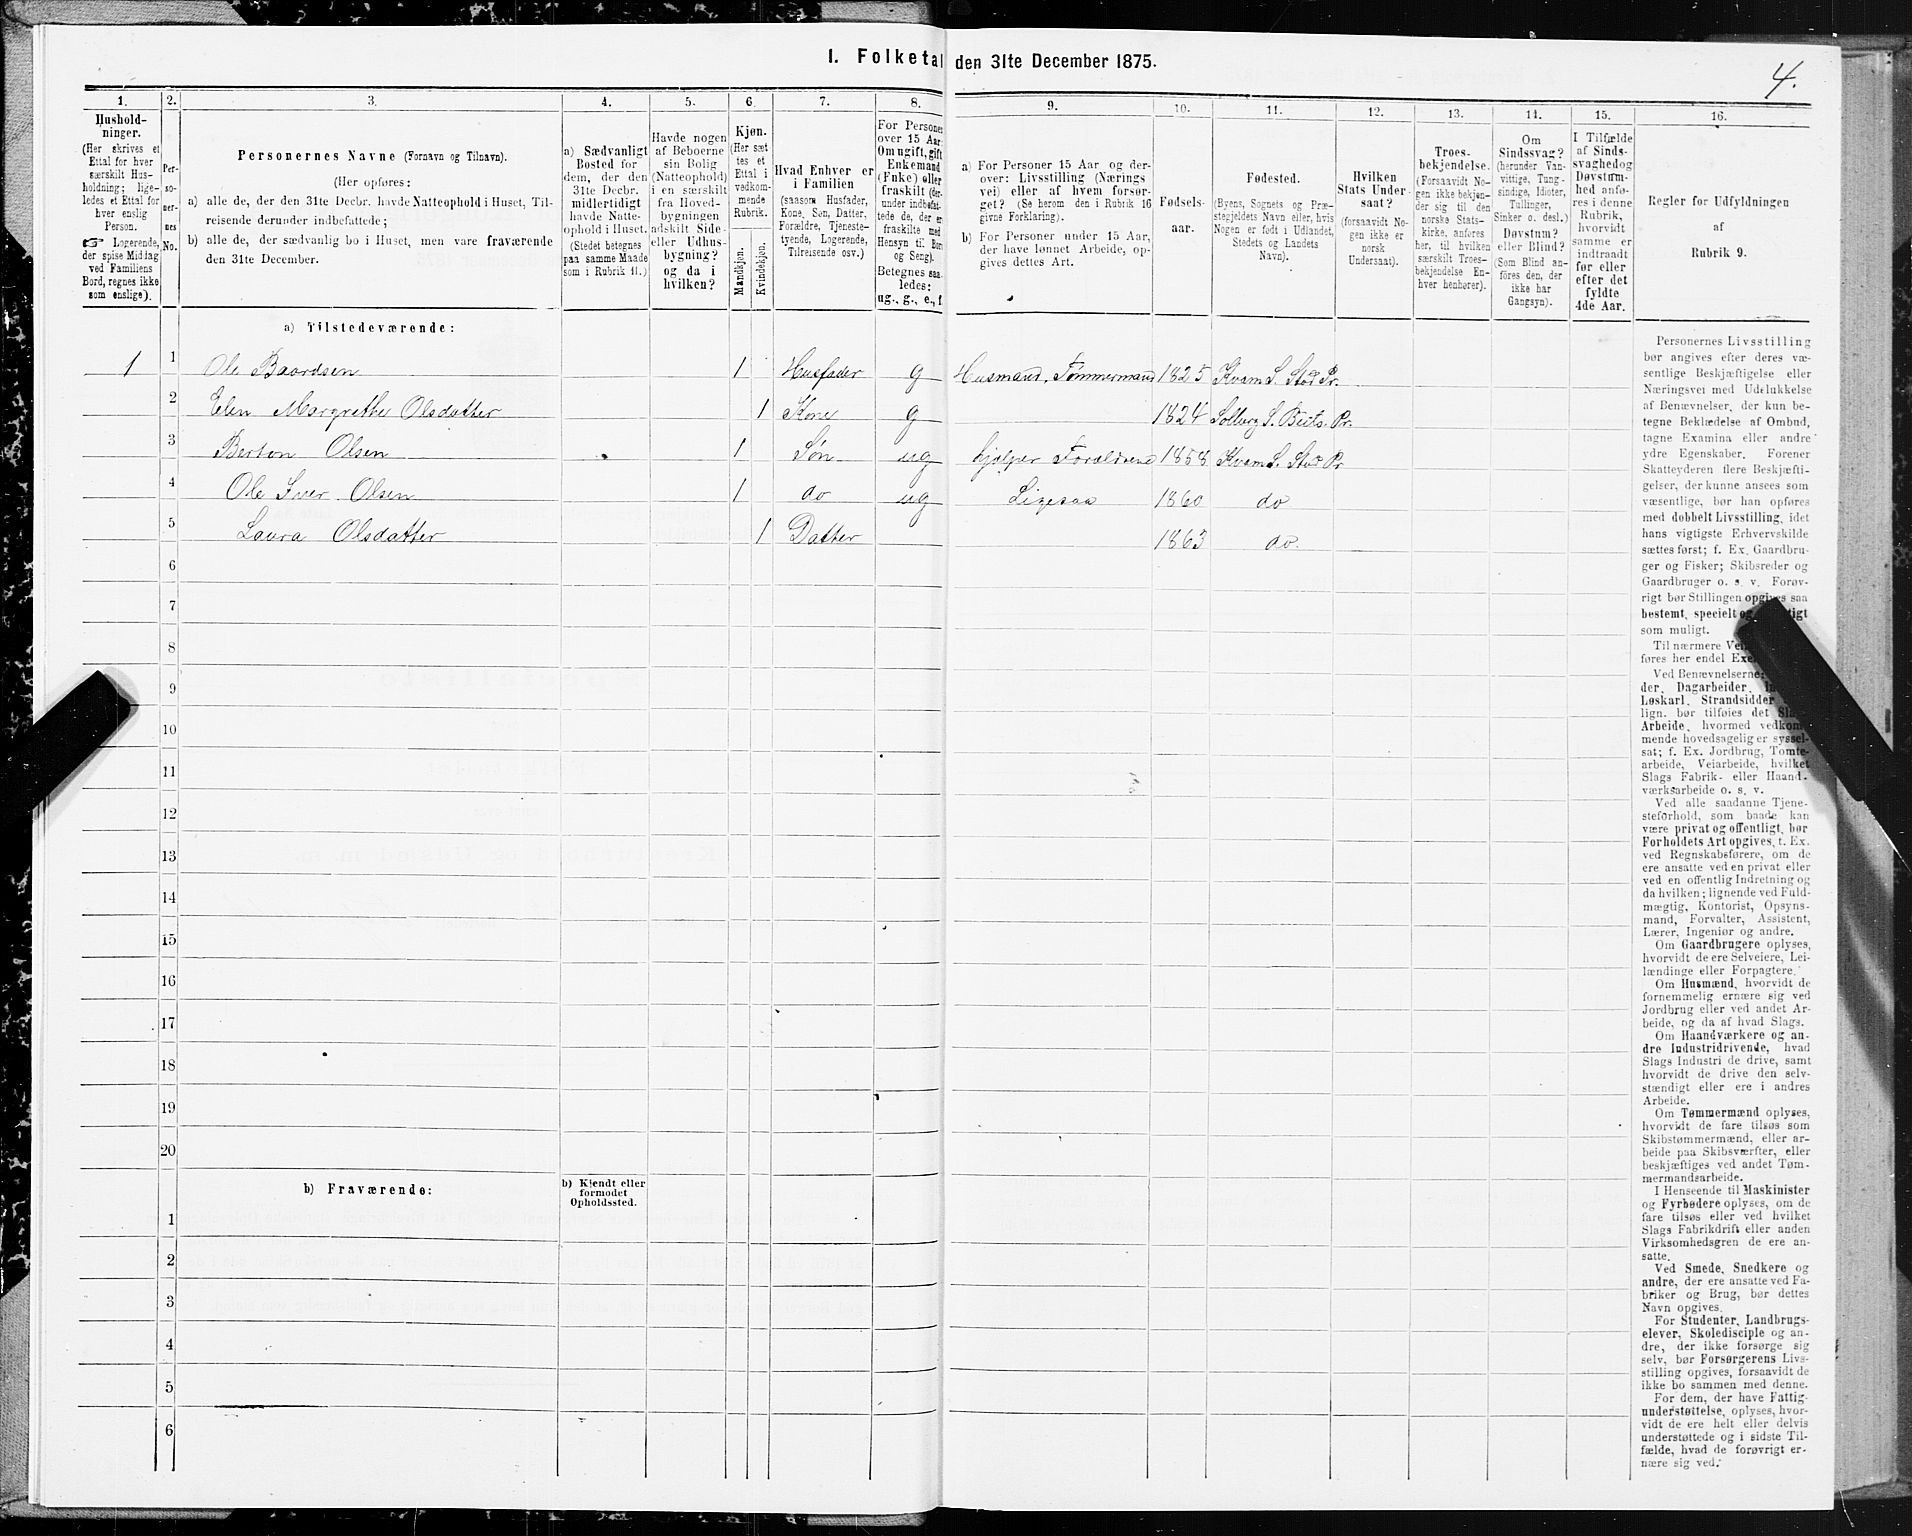 I. Folketal den 31te December 1875.
4.
1. 2. 3. 4. 5. 6. 7. 8. 9. 10. 11. 12. 13. 14. 15. 16.
Hushold-
ninger.
(Her skrives et
Ettal for hver
særskilt Hus-
holdning; lige-
ledes et Ettal for
hver enslig
Person.
☞ Logerende,
der spise Middag
ved Familiens
Bord, regnes ikke
som enslige).
Per-
so-
ner-
nes
No.
Personernes Navne (Fornavn og Tilnavn).
(Her opføres:
a) alle de, der den 31te Decbr. havde Natteophold i Huset, Til-
reisende derunder indbefattede;
b) alle de, der sædvanlig bo i Huset, men vare fraværende
den 31te December.
a) Sædvanligt
Bosted for
dem, der den
31te Decbr.
midlertidigt
havde Natte-
ophold i Huset.
(Stedet betegnes
paa samme Maade
som i Rubrik 11.)
Havde nogen
af Beboerne
sin Bolig
(Natteophold)
i en særskilt
fra Hoved-
bygningen
adskilt Side-
eller Udhus-
bygning?
og da i
hvilken?
Kjøn.
(Her sæt-
tes et
Ettal i
vedkom-
mende
Rubrik.
Mandkjøn.
Kvindekjøn.
Hvad Enhver er
i Familien
(saasom Husfader,
Kone, Søn, Datter,
Forældre, Tjeneste-
tyende, Logerende,
Tilreisende osv.)
For Personer
over 15 Aar:
Om ugift, gift,
Enkemand
(Enke) eller
fraskilt (der-
under indbefat-
tede de, der ere
fraskilte med
Hensyn til Bord
og Seng).
Betegnes saa-
ledes:
ug., g., e., f.
a) For Personer 15 Aar og der-
over: Livsstilling (Nærings-
vei) eller af hvem forsør-
get? (Se herom den i Rubrik 16
givne Forklaring).
b) For Personer under 15 Aar,
der have lønnet Arbeide, op-
gives dettes Art.
Fødsels-
aar.
Fødested.
(Byens, Sognets og Præ-
stegjeldets Navn eller, hvis
Nogen er født i Udlandet,
Stedets og Landets
Navn).
Hvilken
Stats Under-
saat?
(forsaavidt No-
gen ikke er
norsk
Undersaat).
Troes-
bekjendelse.
(Forsaavidt No-
gen ikke bekjen-
der sig til den
norske Stats-
kirke, anføres
her, til hvilken
særskilt Troes-
bekjendelse En-
hver henhører).
Om
Sindssvag?
(herunder Van-
vittige, Tung-
sindige, Idioter,
Tullinger,
Sinker o. desl.)
Døvstum?
eller Blind?
(Som Blind an-
føres den, der
ikke har
Gangsyn).
I Tilfælde
af Sinds-
svaghed og
Døvstum-
hed anfø-
res i denne
Rubrik,
hvorvidt
samme er
indtraadt
før eller
efter det
fyldte
4de Aar.
Regler for Udfyldningen
af
Rubrik 9.
a) Tilstedeværende:
1 1 Ole Baardsen 1 Husfader g Husmand, Tømmermand 1825 Kvam S. Stod Pr.
2 Elen Margrethe Olsdatter 1 Kone g 1824 Solberg S. Beits. Pr.
3 Berton Olsen 1 Søn ug hjelper Forældrene 1858 Kvam S. Stod Pr
4 Ole Iver Olsen 1 do ug Ligesaa 1860 do
5 Laura Olsdatter 1 Datter 1863 do.
6
7
8
9
10
11
12
13
14
15
16
17
18
19
20
b) Fraværende:
b) Kjendt eller
formodet
Opholdssted.
1
2
3
4
5
6
Personernes Livsstilling
bør angives efter deres væ-
sentlige Beskjæftigelse eller
Næringsvei med Udelukkelse
af Benævnelser, der kun be-
tegne Beklædelse af Ombud,
tagne Examina eller andre
ydre Egenskaber. Forener
Skatteyderen flere Beskjæfti-
gelser, der kunne ansees som
væsentlige, bør han opføres
med dobbelt Livsstilling, idet
hans vigtigste Erhvervskilde
sættes først; f. Ex. Gaardbru-
ger og Fisker; Skibsreder og
Gaardbruger o. s. v. Forøv-
rigt bør Stillingen opgives saa
bestemt, specielt og
som muligt.
Til nærmere
føres her endel
Ved Benævnelserne:
der, Dagarbeider,
Løskarl, Strandsidder
lign. bør tilføies det
Arbeide, hvormed vedkom-
mende hovedsagelig er syssel-
sat; f. Ex. Jordbrug, Tomte-
arbeide, Veiarbeide, hvilket
Slags Fabrik- eller Haand-
værksarbeide o. s. v.
Ved alle saadanne Tjene-
steforhold, som baade kan
være privat og offentligt, bør
Forholdets Art opgives, f. Ex.
ved Regnskabsførere, om de
ere ansatte ved en privat eller
ved en offentlig Indretning og
da hvilken; lignende ved Fuld-
mægtig, Kontorist, Opsyns-
mand, Forvalter, Assistent,
Lærer, Ingeniør og andre.
Om Gaardbrugere oplyses,
hvorvidt de ere Selveiere, Lei-
lændinge eller Forpagtere.
Om Husmænd, hvorvidt de
fornemmelig ernære sig ved
Jordbrug eller ved andet Ar-
beide, og da af hvad Slags.
Om Haandværkere og an-
dre Industridrivende, hvad
Slags Industri de drive, samt
hvorvidt de drive den selv-
stændigt eller ere i andres
Arbeide.
Om Tømmermænd oplyses,
hvorvidt de fare tilsøs som
Skibstømmermænd, eller ar-
beide paa Skibsværfter, eller
beskjæftiges ved andet Tøm-
mermandsarbeide.
I Henseende til Maskinister
og Fyrbødere oplyses, om de
fare tilsøs eller ved hvilket
Slags Fabrikdrift eller anden
Virksomhedsgren de ere an-
satte.
Ved Smede, Snedkere og
andre, der ere ansatte ved Fa-
briker og Brug, bør dettes
Navn opgives.
For Studenter, Landbrugs-
elever, Skoledisciple og an-
dre, der ikke forsørge sig
selv, bør Forsørgerens Livs-
stilling opgives, forsaavidt de
ikke bo sammen med denne.
For dem, der have Fattig-
understøttelse, oplyses, hvor-
vidt de ere helt eller delvis
understøttede og i sidste Til-
fælde, hvad de forøvrigt er-
nære sig ved.